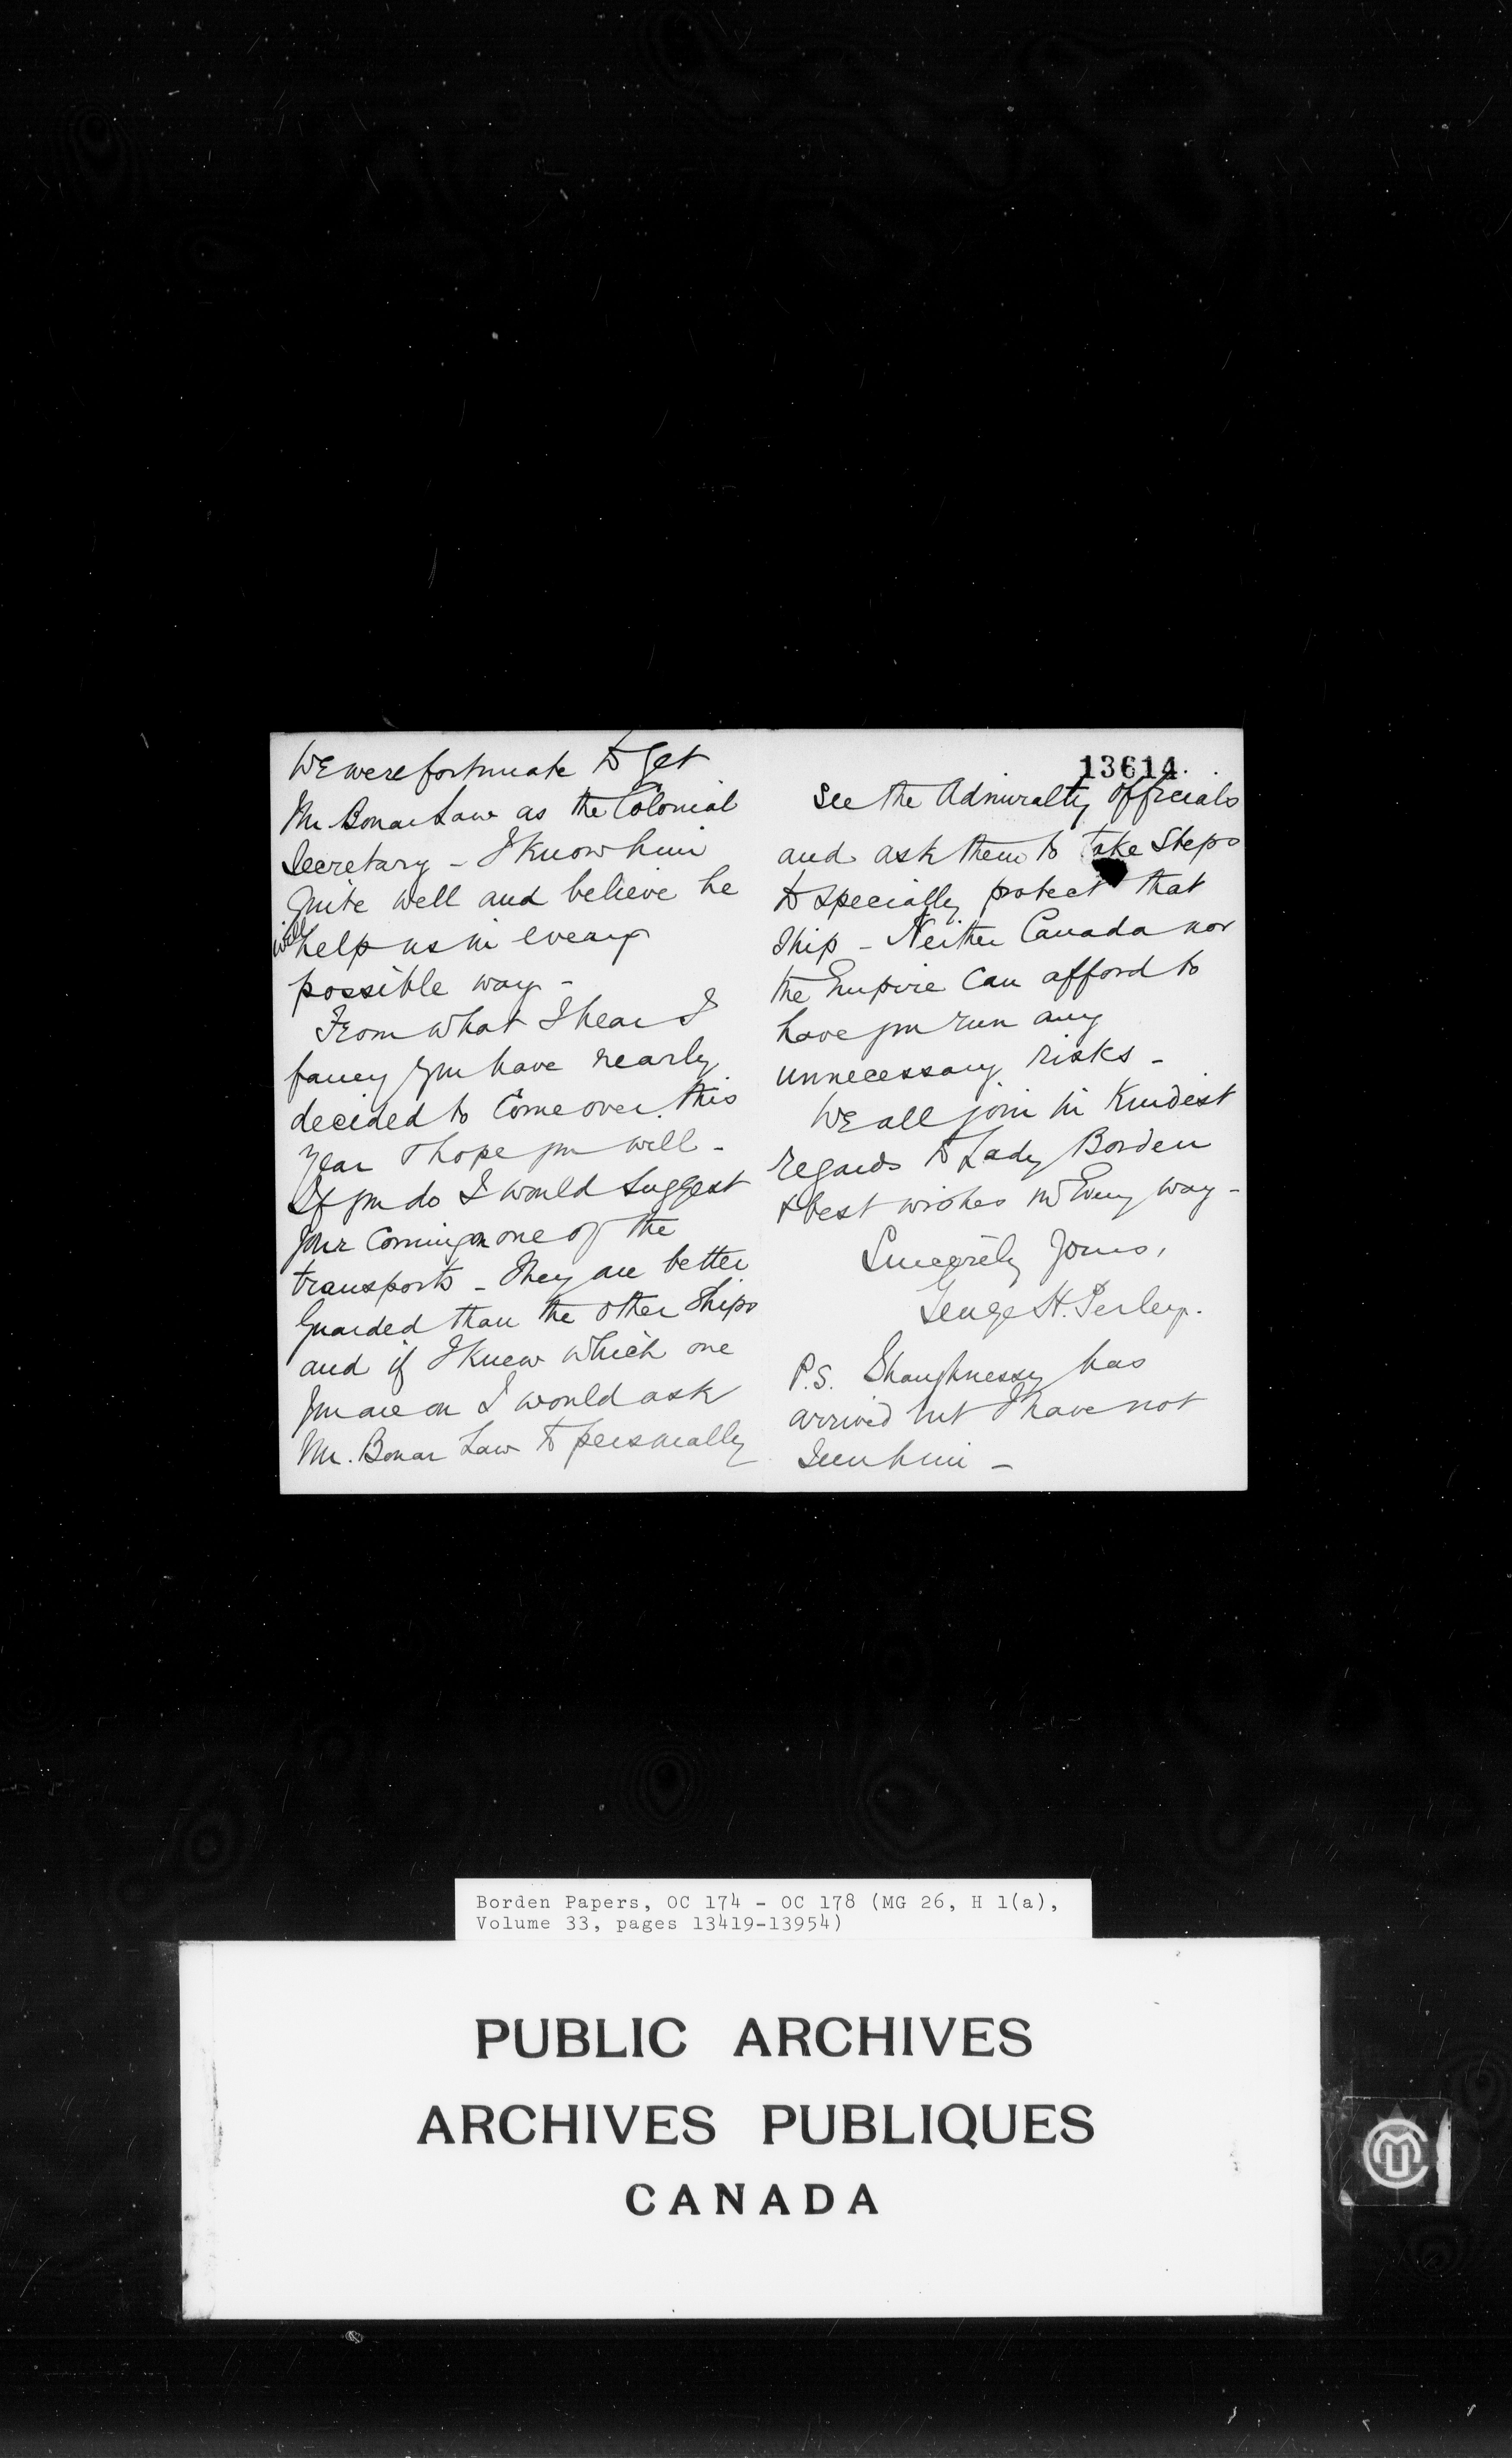 We were fortunate to get
Mr Bonar Law as the Colonial
Secretary - I know him
quite well and believe he
will help us in every
possible way -
From what I hear I
fancy you have nearly
decided to come over this
year & hope you will -
If you do I would suggest
your coming on one of the
transports - They are better
guarded than the other ships
and if I knew which one
you are on I would ask
Mr. Bonar Law to personally
13614.
see the Admiralty officials
and ask them to take steps
to specially protect that
ship - Neither Canada nor
the Empire can afford to
have you run any
unnecessary risks -
We all join in kindest
regards to Lady Borden
& best wishes in every way -
Sincerely yours,
George H. Perley.
P.S. Shaughnessy has
arrived but I have not
seen him -
Borden Papers, OC 174 - OC 178 (MG 26, H 1(a),
Volume 33, pages 13419-13954)
PUBLIC ARCHIVES
ARCHIVES PUBLIQUES
CANADA